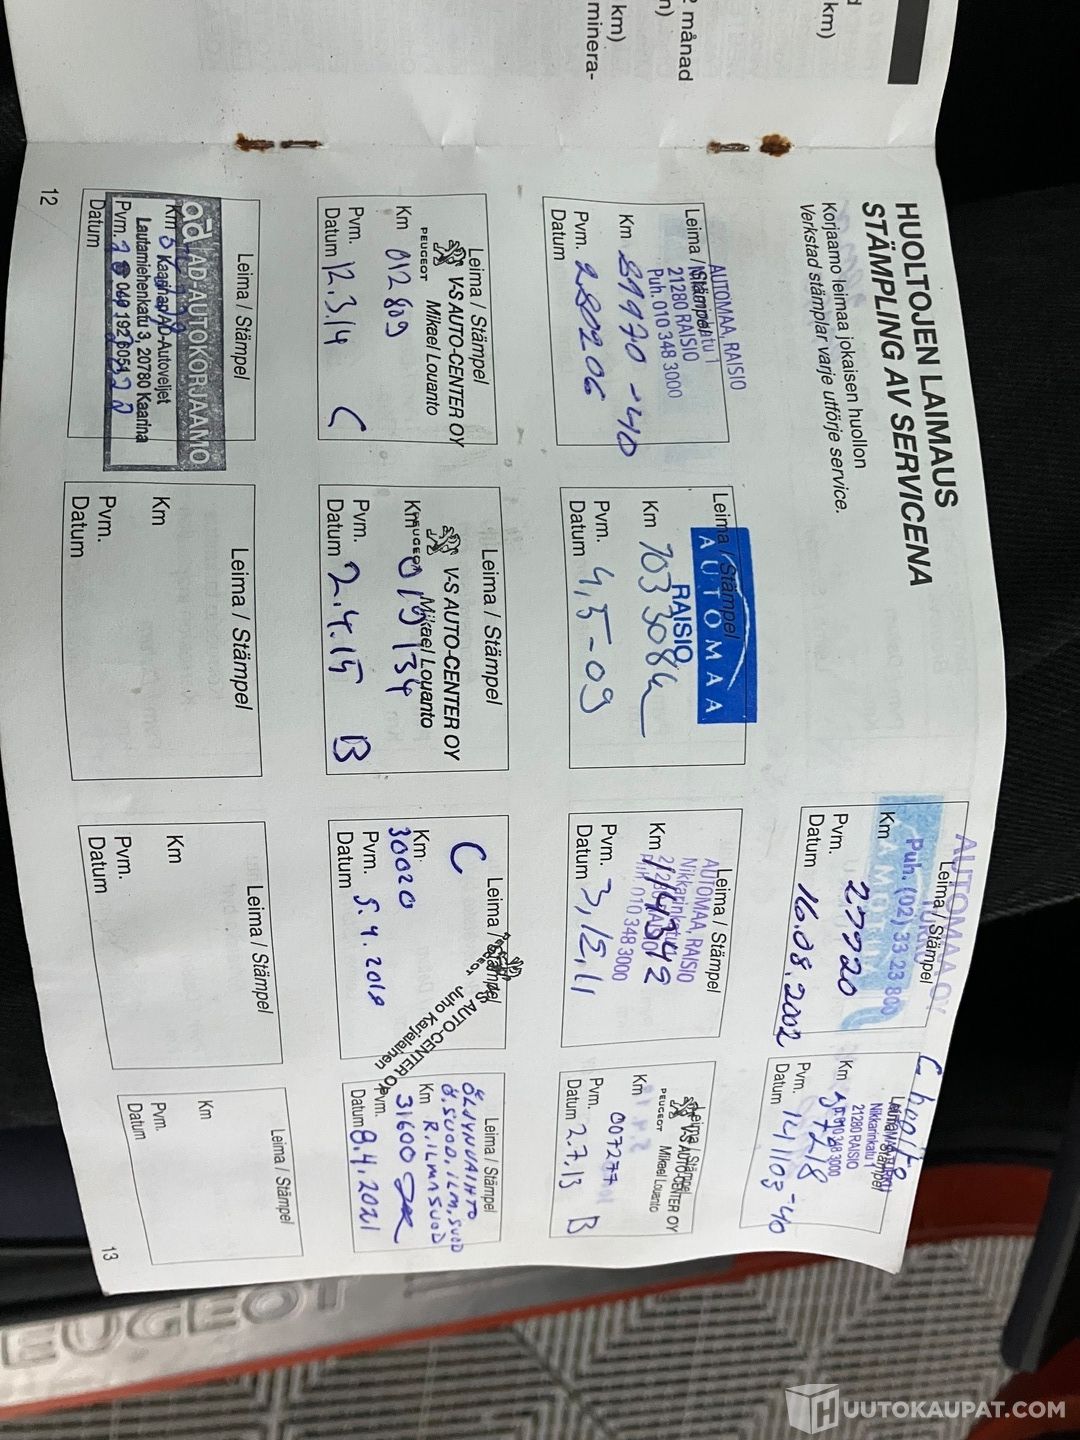 HUOLTOJEN LAIMAUS
STÄMPLING AV SERVICENA
Korjaamo leimaa jokaisen huollon
Verkstad stämplar varje utförje service.
Leima / Stämpel
AUTOMAA OY
TURKU
Puh. (02) 33 23 800
Km 27720
Pvm.
Datum 16.08.2002
C huolto
Leima / Stämpel
Nikkarinkatu 1
21280 RAISIO
Km 57218
Pvm.
Datum 141103 -40
Leima / Stämpel
AUTOMAA, RAISIO
Nikkarinkatu 1
21280 RAISIO
Puh. 010 348 3000
Km 89970 -40
Pvm. 280206
Datum
Leima / Stämpel
AUTOMAA
RAISIO
Km 103308
Pvm. 4,5-09
Datum
Leima / Stämpel
AUTOMAA, RAISIO
Nikkarinkatu 1
21280 RAISIO
010 348 3000
Km 114342
Pvm. 3,12,11
Datum
Leima / Stämpel
V-S AUTO-CENTER OY
PEUGEOT Mikael Louanto
Km 007277
Pvm.
Datum 2.7.13 B
Leima / Stämpel
V-S AUTO-CENTER OY
PEUGEOT Mikael Louanto
Km 012809
Pvm.
Datum 12.3.14 C
Leima / Stämpel
V-S AUTO-CENTER OY
PEUGEOT Mikael Louanto
Km 019134
Pvm.
Datum 2.4.15 B
Leima / Stämpel
V-S AUTO-CENTER OY
PEUGEOT Juho Karjalainen
C
Km 30020
Pvm. 5.4.2018
Datum
Leima / Stämpel
ÖLJYNVAIHTO
Ö.SUOD, ILM.SUOD
R.ILMASUOD
Km 31600
Pvm.
Datum 8.4.2021
Leima / Stämpel
ad AD AUTOKORJAAMO
Kaarinan AD-Autoveljet
Lautamiehenkatu 3, 20780 Kaarina
Km
Pvm.
Datum
Leima / Stämpel
Km
Pvm.
Datum
Leima / Stämpel
Km
Pvm.
Datum
Leima / Stämpel
Km
Pvm.
Datum
12
13
km)
2 månad
km)
minera-
EUGEOT
HUUTOKAUPAT.COM